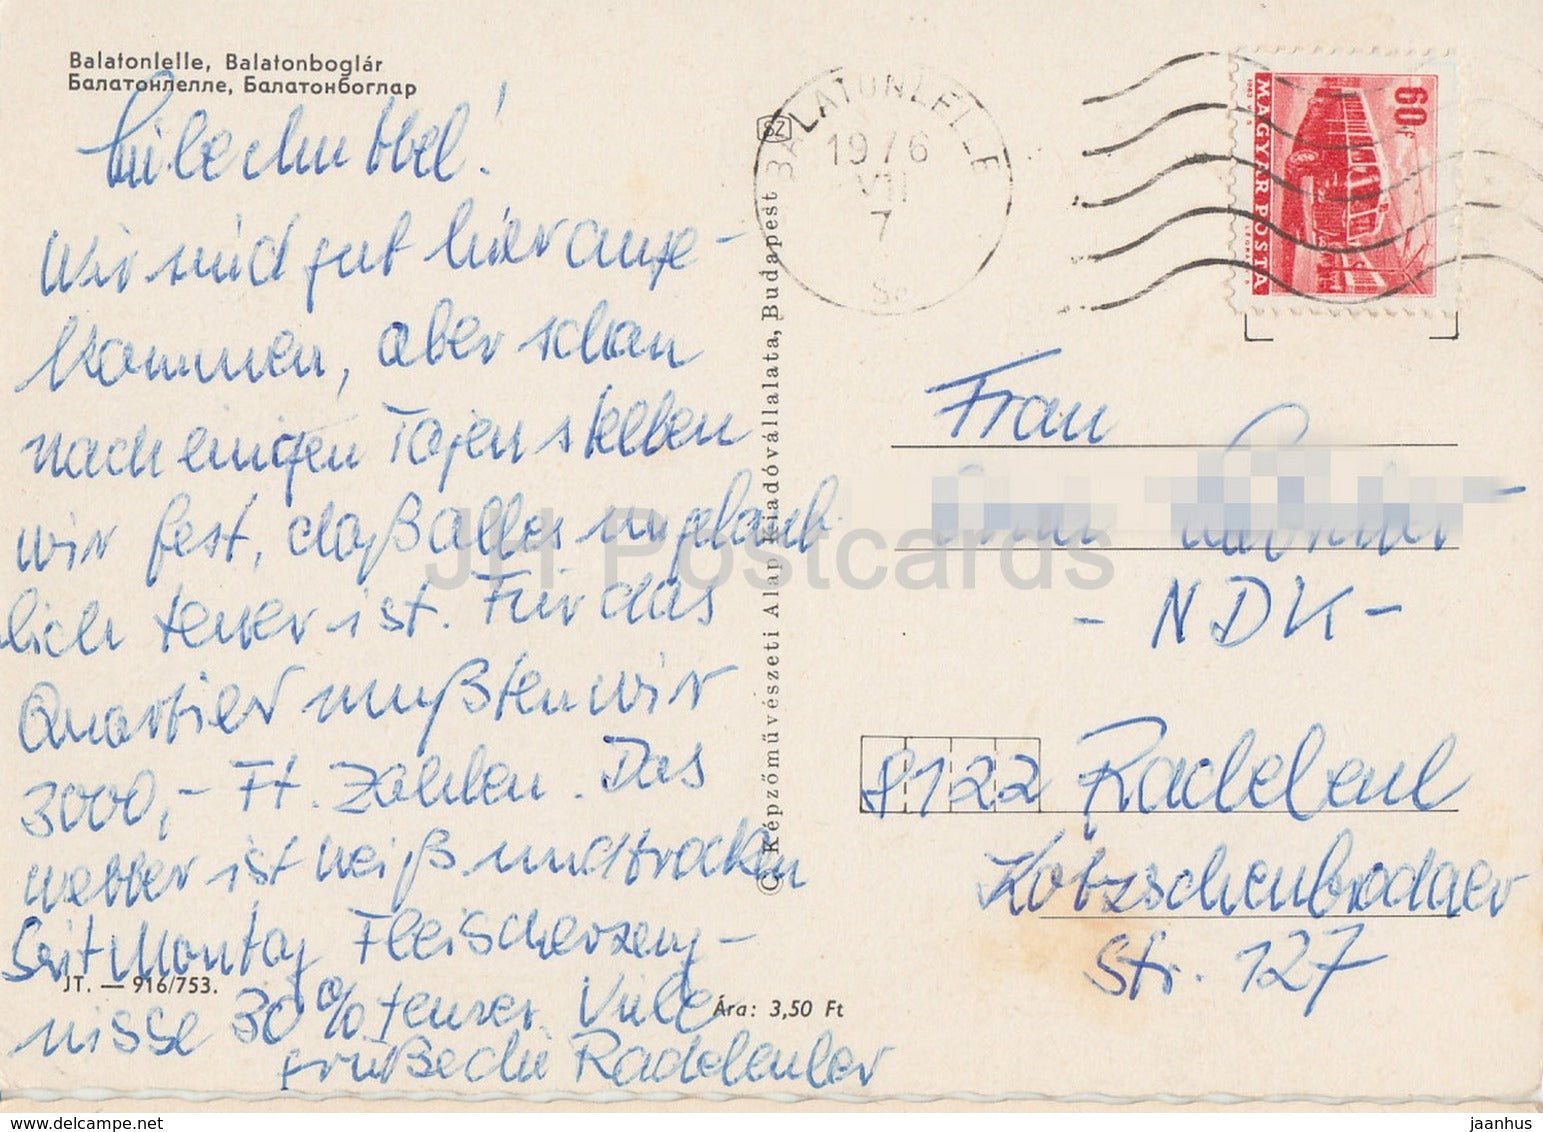 Balatonlelle, Balatonboglár
Балатонлелле, Балатонбоглар
Wir sind gut hier ange-
kommen, aber schon
nach einigen Tagen stellen
wir fest, daß alles unglaub
lich teuer ist. Für das
Quartier mußten wir
3000,- Ft. zahlen. Das
Wetter ist heiß und trocken
Seit Montag Fleischerzeug-
nisse 30 % teurer. Viele
Grüße die Radebeuler
JT. — 916/753.
Ára: 3,50 Ft
SZ
© Képzőművészeti Alap Kiadóvállalata, Budapest
BALATONLELLE
1976
VII
7
60f
MAGYAR POSTA
1963 V. S.
LÉGRÁ
Frau
- NDK -
8122 Radebeul
Kötzschenbrodaer
Str. 127
JH Postcards
www.delcampe.net
jaanhus